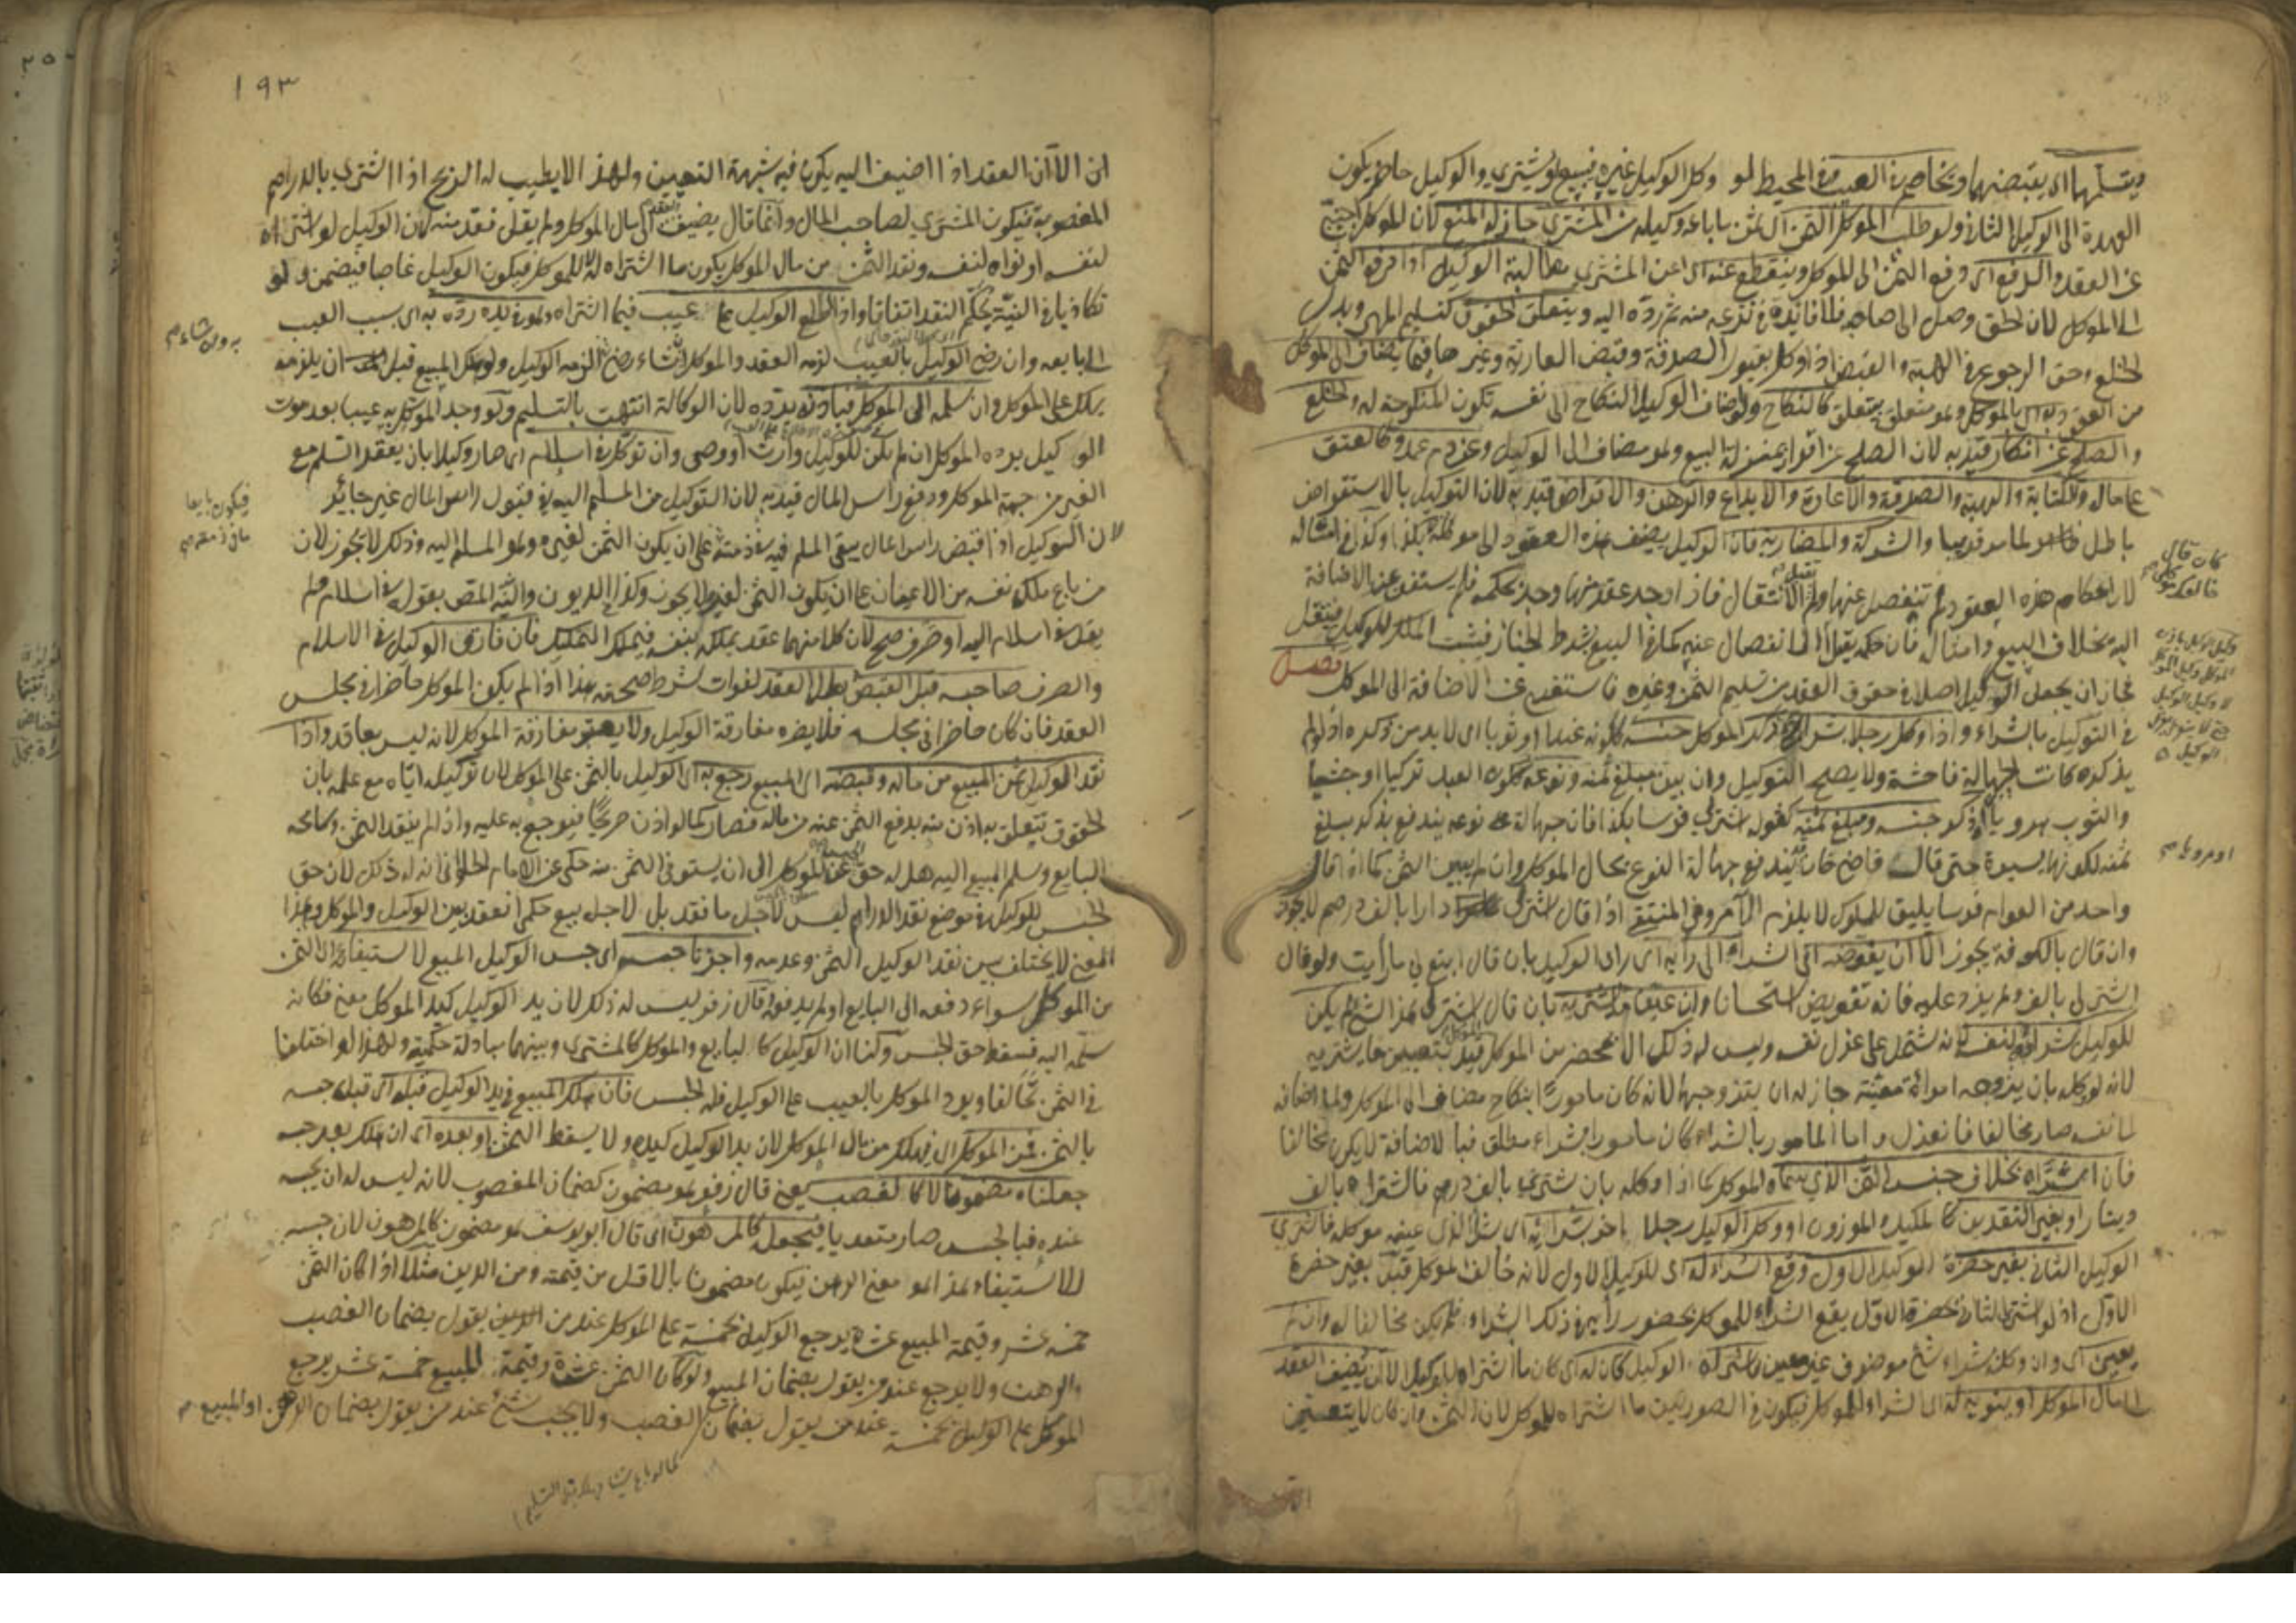 ويتسلمها اي يقبضها ويخاصم في العيب وفي المحيط لو وكل الوكيل غيره فيبيع او يشتري والوكيل حاضر يكون
العهدة الى الوكيل الثاني ولو طلب الموكل الثمن اي ثمن ما باعه وكيله من المشتري جاز له المنع لان الموكل اجنبي
عن العقد والدفع اي دفع الثمن الى الموكل وينقطع عنه اي عن المشتري مطالبة الوكيل اذا دفع الثمن
الى الموكل لان الحق وصل الى صاحبه فلا فائدة في نزعه منه ثم رده اليه ويتعلق حقوق كتسليم المهر وبدل
الخلع وحق الرجوع في الهبة والقبض اذا وكل بقبول الصدقة وقبض العارية وغيرها فيما يضاف الى الموكل
من العقود اي بالموكل وهو متعلق بيتعلق كالنكاح ولو اضاف الوكيل النكاح الى نفسه تكون المنكوحة له والخلع
والصلح عن انكار قيد به لان الصلح عن اقرار بمنزلة البيع وهو مضاف الى الوكيل وعن دم عمد والعتق
على مال والكتابة والهبة والصدقة والاعارة والايداع والرهن والاقراض قيد به لان التوكيل بالاستقراض
باطل لما مر قريبا والشركة والمضاربة فان الوكيل يضيف هذه العقود الى موكله
لان احكام هذه العقود لم تنفصل عنها ولم تقبل الانتقال فاذا وجد عقد منها وجد حكمه فلم يستغن عن الاضافة
اليه بخلاف البيع وامثاله فان حكمه يقبل الانفصال عنه كما في البيع بشرط الخيار فيثبت الملك للوكيل فينتقل
فجاز ان يجعل الوكيل اصلا في حقوق العقد من تسليم الثمن وغيره فاستغنى عن الاضافة الى الموكل فصل
في التوكيل بالشراء واذا وكل رجلا بشراء ذكر الموكل جنسه ككونه عبدا او ثوبا اي لا بد من ذكره اذ لو لم
يذكره كانت الجهالة فاحشة ولا يصح التوكيل وان بين مبلغ ثمنه ونوعه ككون العبد تركيا او حبشيا
والثوب هرويا او ذكر جنسه ومبلغ ثمنه كقوله اشتر لي فرسا بكذا فان جهالة نوعه يندفع بذكر مبلغ
ثمنه لكونها يسيرة حتى قال قاضي خان يندفع جهالة النوع بحال الموكل وان لم يبين الثمن كما اذا قال
واحد من العوام فرسا يليق للملوك لا يلزم الآمر وفي المنتقى اذا قال اشتر لي دارا بالف درهم لا يجوز
وان قال بالكوفة يجوز الا ان يفوضه اي الشراء الى رأيه اي رأي الوكيل بان قال ابتع لي ما رأيت ولو قال
اشتر لي بالف ولم يزد عليه فانه تفويض استحسانا وان عين ما يشتريه بان قال اشتر لي هذا الشيء لم يكن
للوكيل شراؤه لنفسه لانه يشتمل على عزل نفسه وليس له ذلك الا بمحضر من الموكل قيد بتعيين ما يشتريه
لانه لو وكله بان يزوجه امرأة معينة جاز له ان يتزوجها لانه كان مامورا بنكاح مضاف الى الموكل ولما اضافه
الى نفسه صار مخالفا فانعزل واما المامور بالشراء كان مامورا بشراء مطلق فبالاضافة لا يكون مخالفا
فان اشتراه بخلاف جنس الثمن الذي سماه الموكل كما اذا وكله بان يشتري بالف درهم فاشتراه بالف
دينار او بغير النقدين كالمكيل والموزون او وكل الوكيل رجلا اخر بشرائه اي شراء الذي عينه موكله فاشترى
الوكيل الثاني بغير حضرة الوكيل الاول وقع الشراء له اي للوكيل الاول لانه خالف الموكل قيد بغير حضرة
الاول اذ لو اشترى الثاني بحضرة الاول يقع الشراء للموكل بحضور رأيه في ذلك الشراء فلم يكن مخالفا له وان لم
يعين اي وان وكل بشراء شيء موصوف غير معين فاشتراه الوكيل كان له اي كان ما اشتراه للوكيل الا ان يضيف العقد
الى مال الموكل او ينويه له اي الشراء للموكل فيكون في الصورتين ما اشتراه للموكل لان الثمن وان كان لا يتعين
كان قال
وكيل الوكيل باذن
الموكل وكيل الموكل
لا وكيل الوكيل
حتى لا ينعزل بعزل
الوكيل
او مرويا صح
١٩٣
الا ان العقد اذا اضيف اليه يكون فيه شبهة التعيين ولهذا لا يطيب له الربح اذا اشترى بالدراهم
المغصوبة فيكون المشترى لصاحب المال وانما قال يضيف العقد الى مال الموكل ولم يقل نقد منه لان الوكيل لو اشتراه
لنفسه او نواه لنفسه ونقد الثمن من مال الموكل يكون ما اشتراه له لا للموكل فيكون الوكيل غاصبا فيضمن ولو
تكاذبا في النية يحكم النقد اتفاقا واذا اطلع الوكيل على عيب فيما اشتراه وهو في يده رده به اي بسبب العيب
الى بايعه وان رضي الوكيل بالعيب لزمه العقد والموكل ان شاء رضي وان شاء الزمه الوكيل ولو هلك المبيع قبل ان يلزمه
يهلك على الموكل وان سلمه الى الموكل فباذنه يرده لان الوكالة انتهت بالتسليم ولو وجد الموكل به عيبا بعد موت
الوكيل يرده الموكل ان لم يكن للوكيل وارث او وصي وان توكل في اسلام اي صار وكيلا بان يعقد السلم مع
الغير من جهة الموكل ودفع رأس المال قيد به لان التوكيل من المسلم اليه في قبول رأس المال غير جائز
لان الوكيل اذا قبض رأس المال يبقى المسلم فيه في ذمته على ان يكون الثمن لغيره وهو المسلم اليه وذلك لا يجوز لان
من باع ملك نفسه من الاعيان على ان يكون الثمن لغيره لا يجوز وكذا الديون واليه المصنف بقوله في اسلام ولم
يقل في اسلام اليه او صرف صح لان كلا منهما عقد يملكه بنفسه فيملك التمليك فان فارق الوكيل في الاسلام
والصرف صاحبه قبل القبض بطل العقد لفوات شرط صحته هذا اذا لم يكن الموكل حاضرا في مجلس
العقد فان كان حاضرا في مجلسه فلا يضره مفارقة الوكيل ولا يعتبر مفارقة الموكل لانه ليس بعاقد واذا
نقد الوكيل ثمن المبيع من ماله وقبضه اي المبيع رجع به اي الوكيل بالثمن على الموكل لان توكيله اياه مع علمه بان
الحقوق يتعلق به اذن منه بدفع الثمن عنه من ماله فصار كما لو اذن صريحا فيرجع به عليه واذا لم ينقد الثمن وسامحه
البايع وسلم المبيع اليه هل له حق الحبس عن الموكل الى ان يستوفي الثمن منه حكي عن الامام الحلواني ان له ذلك لان حق
الحبس للوكيل في موضع نقد الدراهم ليس لاجل ما نقد بل لاجل بيع حكمي انعقد بين الوكيل والموكل وهذا
المعنى لا يختلف بين نقد الوكيل الثمن وعدمه واجزنا حبسه اي حبس الوكيل المبيع لاستيفائه اي الثمن
من الموكل سواء دفعه الى البايع او لم يدفعه قال زفر ليس له ذلك لان يد الوكيل كيد الموكل معنى فكانه
سلمه اليه فسقط حق الحبس ولنا ان الوكيل كالبايع والموكل كالمشتري وبينهما مبادلة حكمية ولهذا لو اختلفا
في الثمن تحالفا ويرد الموكل بالعيب على الوكيل فله الحبس فان هلك المبيع في يد الوكيل قبله اي قبل حبسه
بالثمن فمن الموكل اي فيهلك من مال الموكل لان يد الوكيل كيده ولا يسقط الثمن او بعده اي ان هلك بعد حبسه
جعلناه مضمونا لا كالغصب يعني قال زفر هو مضمون كضمان المغصوب لانه ليس له ان يحبسه
عنده فبالحبس صار متعديا فيجعل كالمرهون اي قال ابو يوسف هو مضمون كالمرهون لان حبسه
للاستيفاء هذا هو معنى الرهن فيكون مضمونا بالاقل من قيمته ومن الدين مثلا اذا كان الثمن
خمسة عشر وقيمة المبيع عشرة يرجع الوكيل بخمسة على الموكل عند من يقول بضمان الغصب
والرهن ولا يرجع عند من يقول بضمان المبيع ولو كان الثمن عشرة وقيمة المبيع خمسة عشر يرجع
الموكل على الوكيل بخمسة عند من يقول بضمان الغصب ولا يجب شيء عند من يقول بضمان الرهن او المبيع
فيكون بايعا